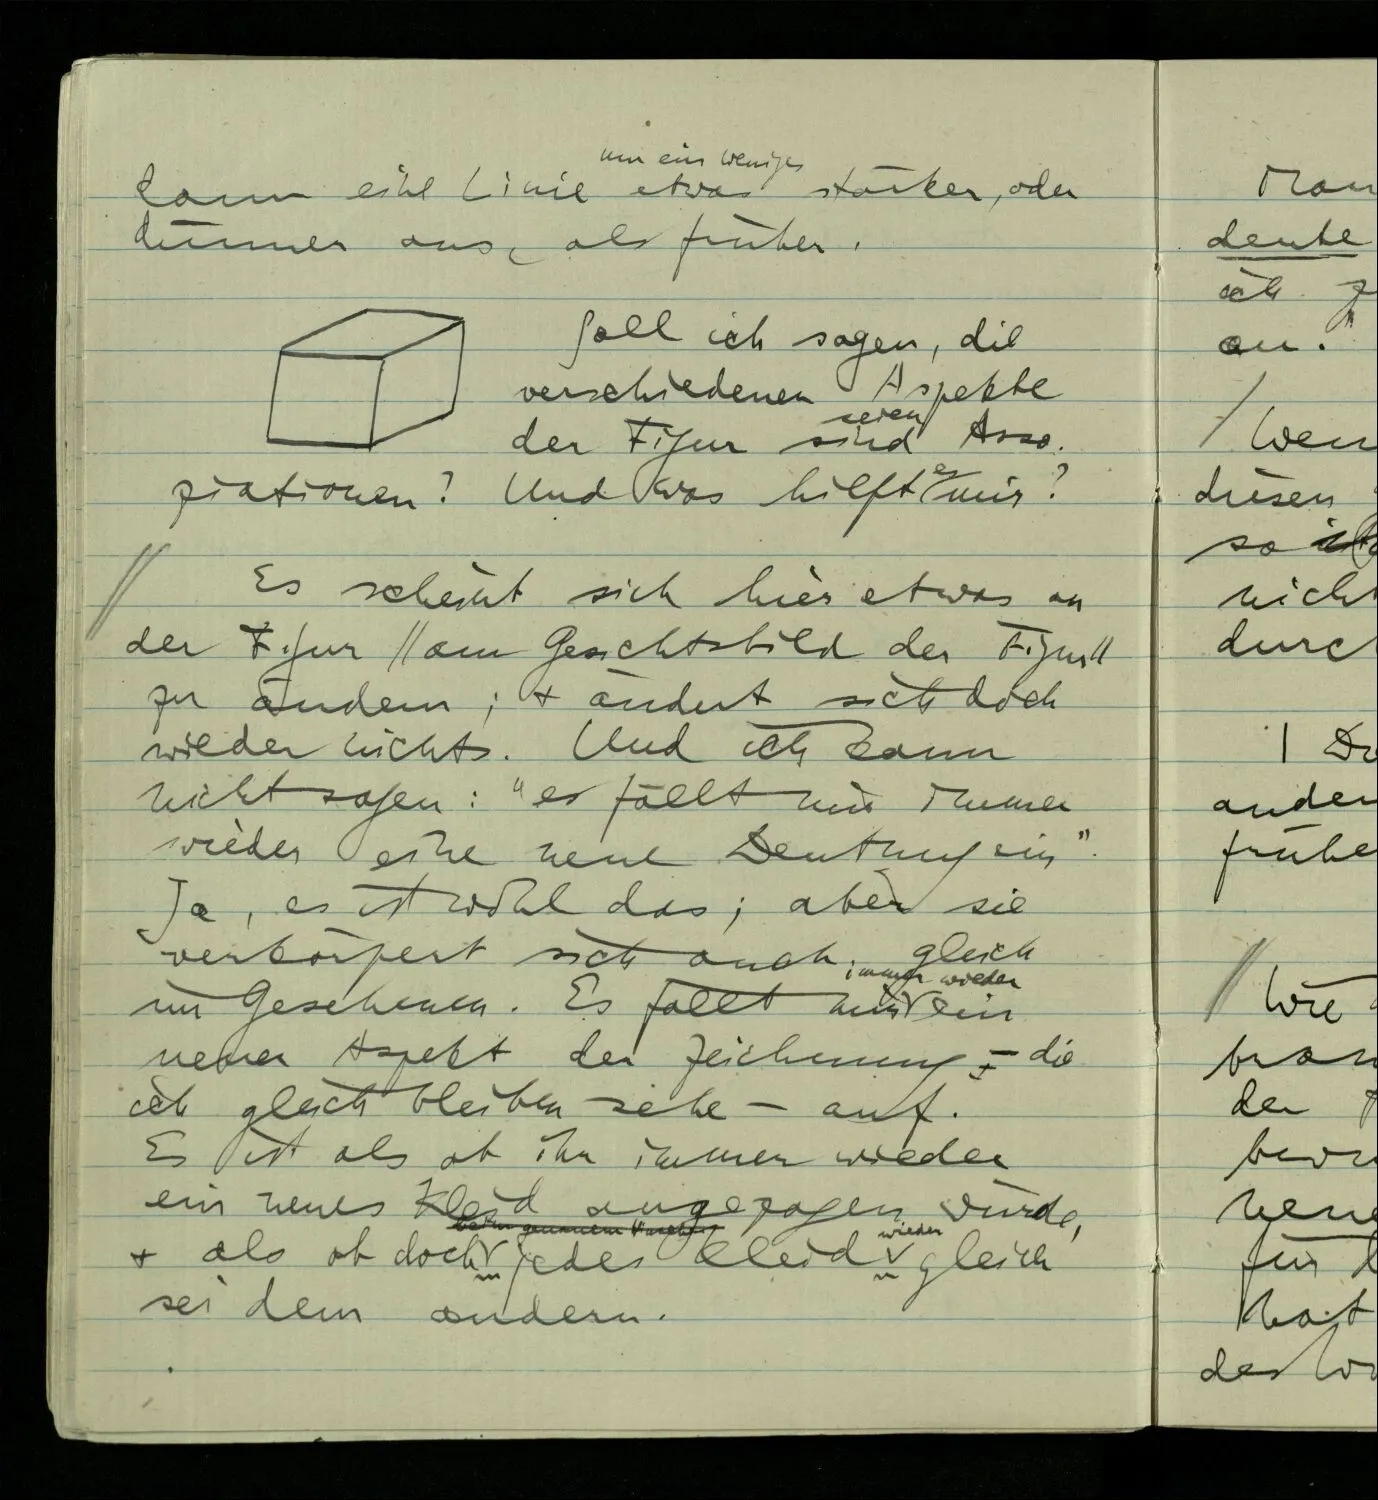 um ein weniges
kann eine Linie etwas stärker, oder
dünner aus, als früher.
Soll ich sagen, die
verschiedenen Aspekte
seien
der Figur sind Asso-
ziationen? Und was hilft es mir?
Es scheint sich hier etwas an
der Figur // am Gesichtsbild der Figur //
zu ändern; + ändert sich doch
wieder nichts. Und ich kann
nicht sagen: "es fällt mir immer
wieder eine neue Deutung ein".
Ja, es ist wohl das; aber sie
verkörpert sich auch gleich
immer wieder
im Gesehenen. Es fällt mir ein
neuer Aspekt der Zeichnung – die
ich gleich bleiben sehe – auf.
Es ist als ob ihr immer wieder
ein neues Kleid angezogen würde,
beim genauem
wieder
+ als ob doch jedes Kleid gleich
sei dem andern.
Man
denke
ich
an."
/ Wen
diesen
so
nicht
durc
|
ander
frühe
// Wie
bran
der
neue
für
hat
des